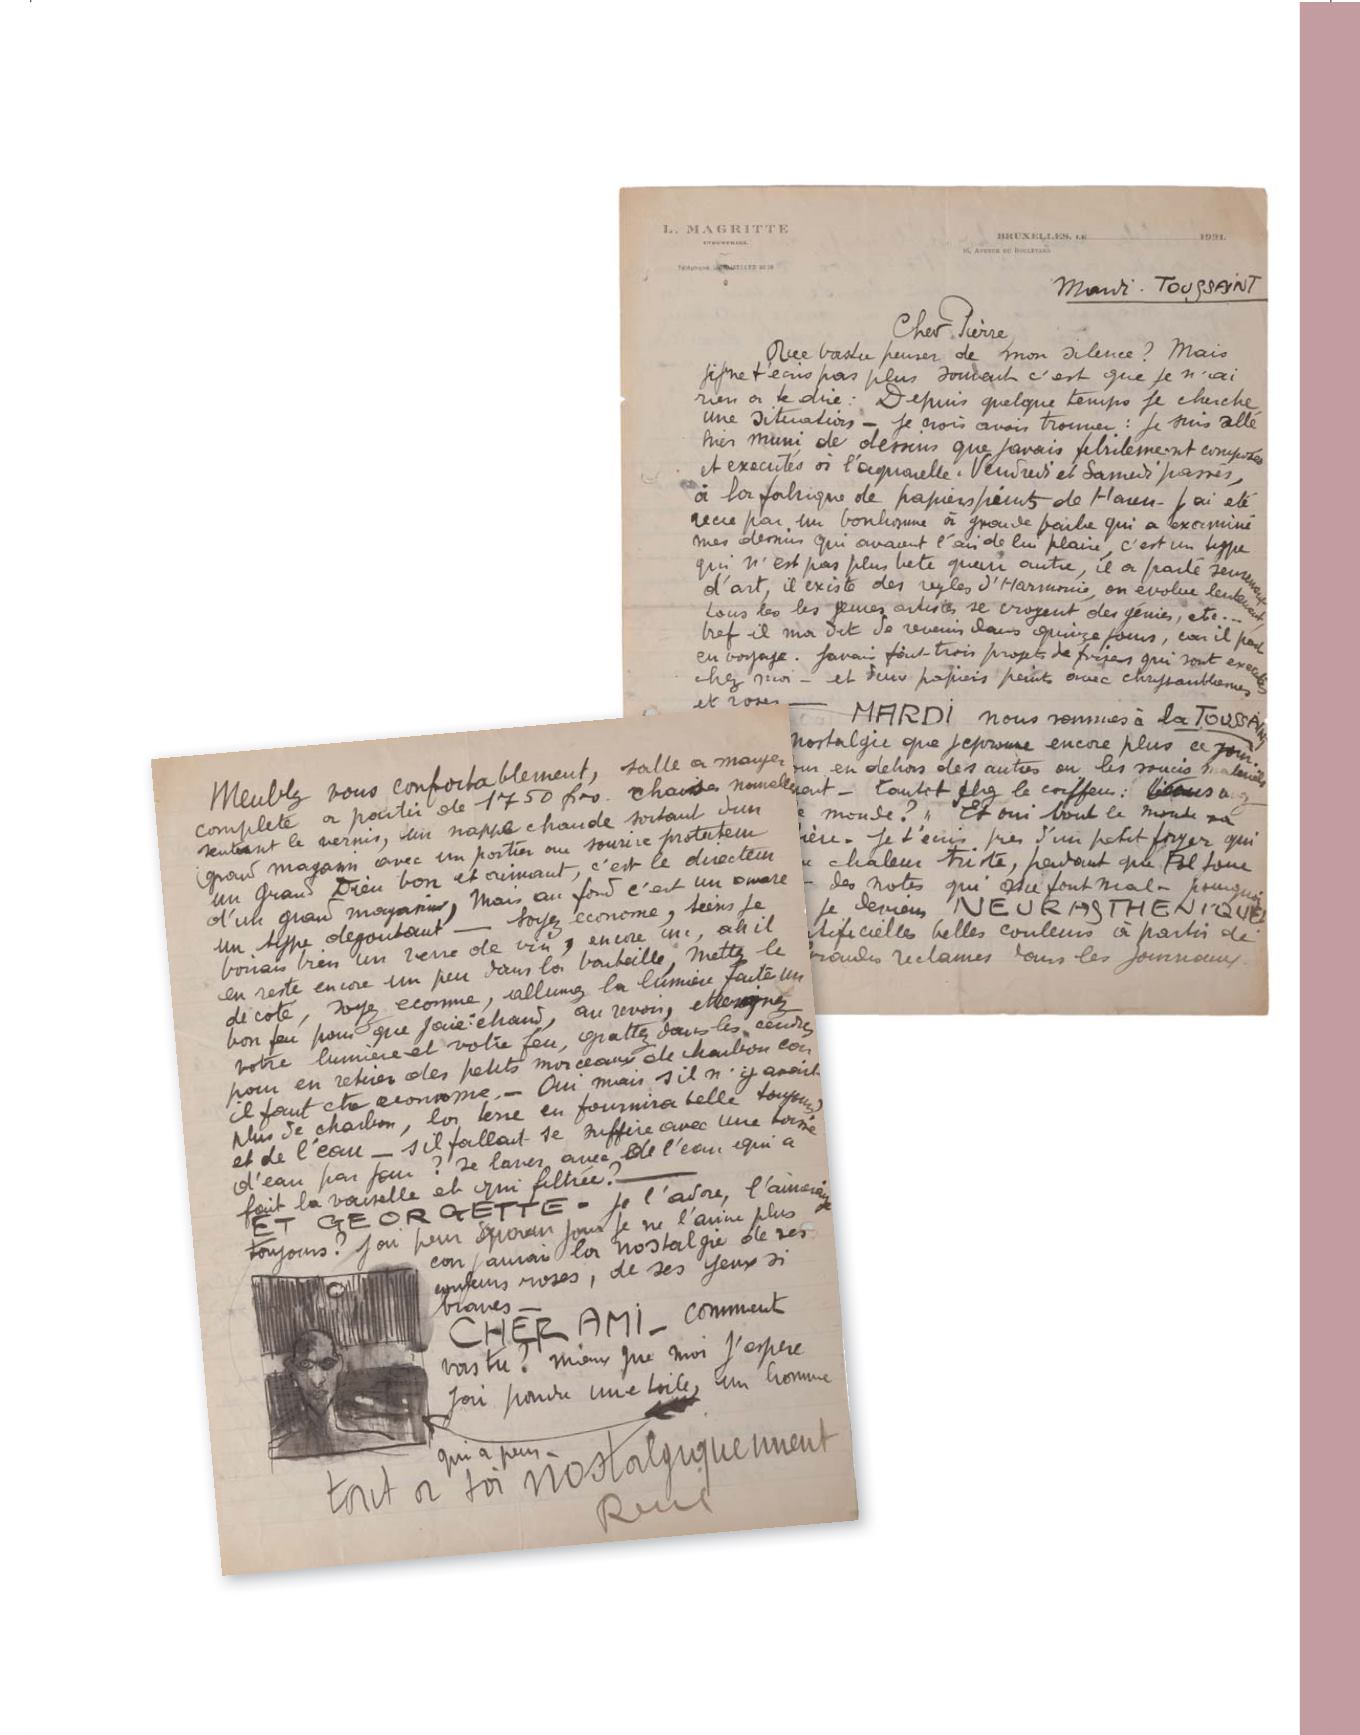 L. MAGRITTE
INDUSTRIEL
BRUXELLES, LE 1921.
16, AVENUE DU BOULEVARD
Mardi. TOUSSAINT
Cher Pierre,
Que vastu penser de mon silence? Mais
si je ne t'écris pas plus souvent c'est que je n'ai
rien a te dire: Depuis quelque temps je cherche
une situation — je crois avoir trouver: je suis allé
hier muni de dessins que javais febrilement composés
et executés à l'aquarelle, Vendredi et Samedi passés,
à la fabrique de papiers peints de Haren. j'ai eté
recu par un bonhomme à grande barbe qui a examiné
mes dessins qui avaient l'air de lui plaire, c'est un type
qui n'est pas plus bete quun autre, il a parlé
d'art, il existe des regles d'Harmonie, on evolue lentement,
tous les jeunes artistes se croyent des génies, etc...
bref il ma dit de revenir dans quinze jours, car il part
en voyage. javais fait trois projets de frises qui sont executés
chez moi — et deux papiers peints avec chrysanthemes
et roses — MARDI nous sommes à la TOUSSAINT
nostalgie que jeprouve encore plus ce jour.
en dehors des autres ou les soucis materiels
— tantot chez le coiffeur:
monde?" Et oui tout le monde
je t'ecris pres d'un petit foyer qui
chaleur triste, pendant que Pol joue
— des notes qui me font mal — pourquoi
je deviens NEURASTHENIQUE
belles couleurs à partir de
grandes reclames dans les journaux.
Meublez vous confortablement, salle a manger
complete a partir de 1750 frs. chaises nouvelles
sentant le vernis, un nappe chaude sortant d'un
grand magasin avec un portier au sourire protecteur
un Grand Dieu bon et aimant, c'est le directeur
d'un grand magasin, Mais au fond c'est un avare
un type degoutant — soyez econome, tiens je
boirais bien un verre de vin, encore un, ah il
en reste encore un peu dans la bouteille, Mettez le
de coté, soyez econome, allumez la lumière faite un
bon feu pour que jaie chaud, au revoir, etteignez
votre lumière et votre feu, grattez dans les cendres
pour en retirer des petits morceaux de charbon car
il faut etre econome. — Oui mais s'il n'y avait
plus de charbon, la terre en fournira telle toujours?
et de l'eau — s'il fallait se suffire avec une
d'eau par jour? se laver avec de l'eau qui a
fait la vaisselle et qui filtrée? —
ET GEORGETTE - je l'adore, l'aimerai je
toujours? j'ai peur qu'un jour je ne l'aime plus
car jaurai la nostalgie de ses
couleurs roses, de ses yeux si
braves —
CHER AMI — comment
vas tu? mieux que moi j'espere
j'ai pondu une toile, un homme
qui a peur —
tout a toi nostalgiquement
René